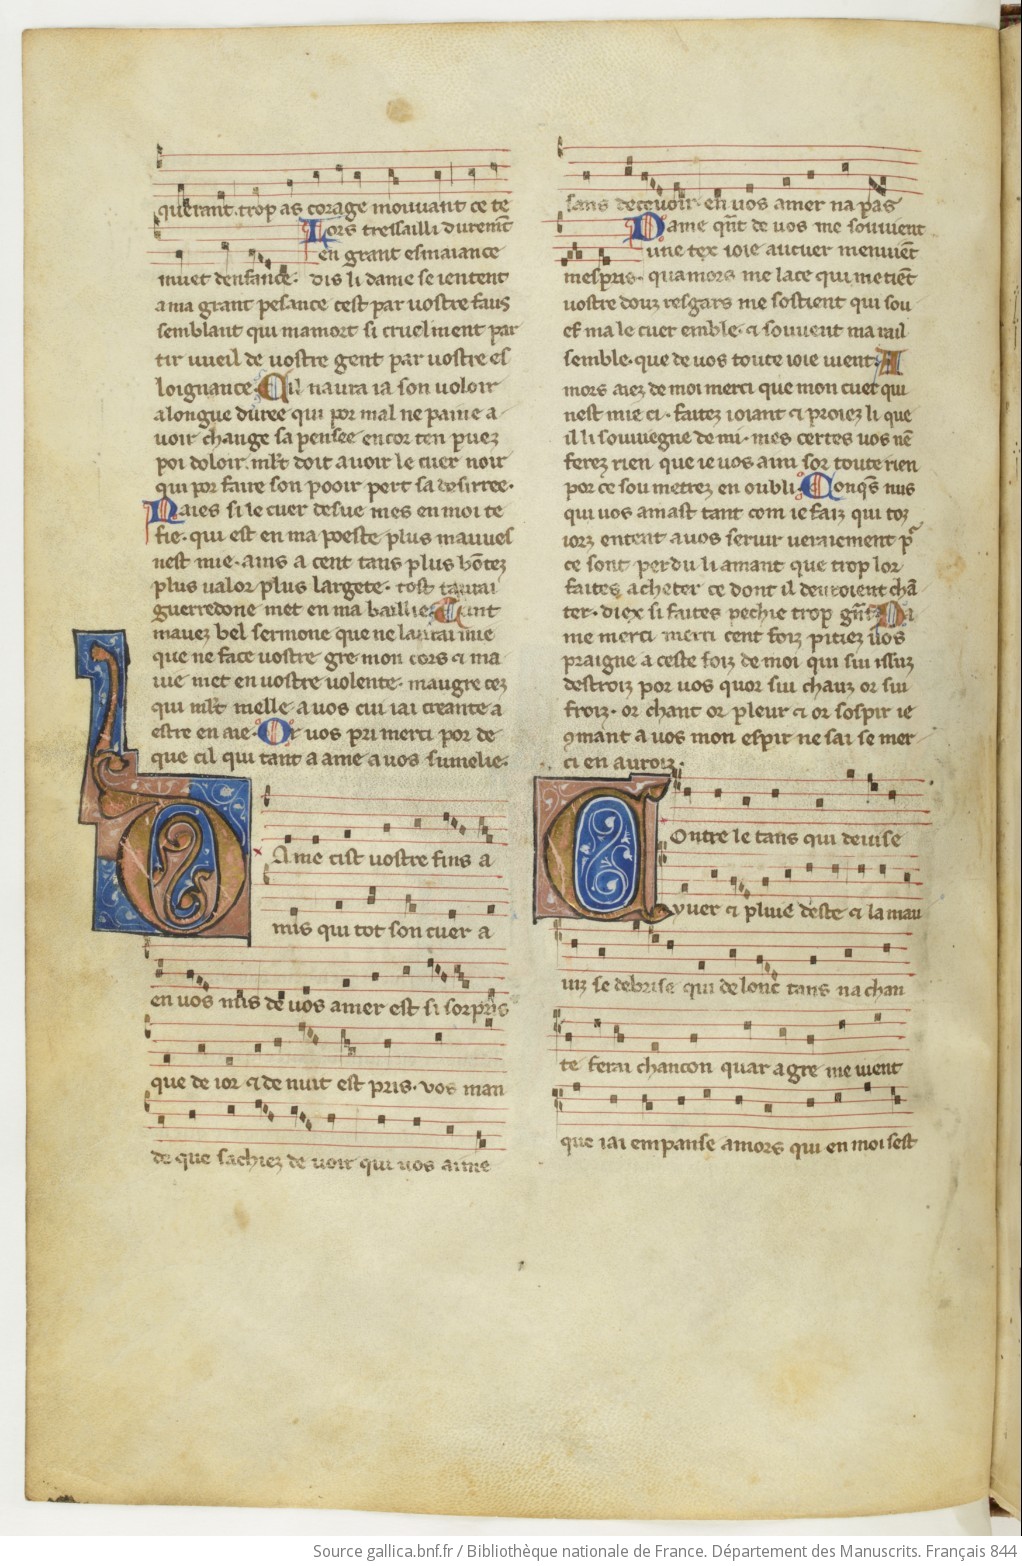 querant. trop as corage mouvant ce te
Lors tressailli durem̄t
en grant esmaiance
muet denfance. dis li dame se ientent
a ma grant pesance cest par vostre faus
semblant qui mamort si cruelment par
tir vueil de vostre gent par vostre es
loignance. Cil naura ia son voloir
a longue duree qui por mal ne paine a
voir change sa pensee encor ten puez
poi doloir. ml̄t doit avoir le cuer noir
qui por faire son pooir pert sa desirree.
Naies si le cuer desve mes en moi te
fie. qui est en ma poeste plus mauves
nest mie. ains a cent tans plus bōtez
plus valor plus largete. tost tavrai
guerredone met en ma baillie. Cunt
mauez bel sermone que ne laurai mie
que ne face vostre gre mon cors ⁊ ma
vie met en vostre volente. maugre cez
qui ml̄t melle a vos cui iai creante a
estre en aie. Or vos pri merci por de
que cil qui tant a ame a vos sumelie.
Ame cist vostre fins a
mis qui tot son cuer a
en vos mis de vos amer est si sorpris
que de ior ⁊ de nuit est pris. vos man
de que sachiez de voir qui vos aime
sans decevoir. en vos amer na pas
Dame qn̄t de vos me souvient
une tex ioie au cuer menviēt
mespris. quamors me lace qui me tiēt
vostre douz resgars me sostient qui sou
ef ma le cuer emble. ⁊ souvent ma vail
semble. que de vos toute ioie vient. A
mors aiez de moi merci que mon cuer qui
nest mie ci. faitez ioiant ⁊ proiez li que
il li souviegne de mi. mes certes vos nē
ferez rien que ie vos aim sor toute rien
por ce sou metrez en oubli. Conqs̄ nus
qui vos amast tant com ie faiz qui toz
iorz entent a vos servir veraiement p̄
ce sont perdu li amant que trop lor
faites acheter ce dont il devroient chā
ter. diex si faites pechie trop gn̄t. Da
me merci merci cent foiz pitiez vos
praigne a ceste foiz de moi qui sui issuz
destroiz por vos quor sui chauz or sui
froiz. or chant or pleur ⁊ or sospir ie
ꝯmant a vos mon espir ne sai se mer
ci en auroiz.
Contre le tans qui devise
yver ⁊ pluie deste ⁊ la mau
uiz se debrise qui de lonc tans na chan
te ferai chancon quar a gre me vient
que iai empanse amors qui en moi sest
Source gallica.bnf.fr / Bibliothèque nationale de France. Département des Manuscrits. Français 844